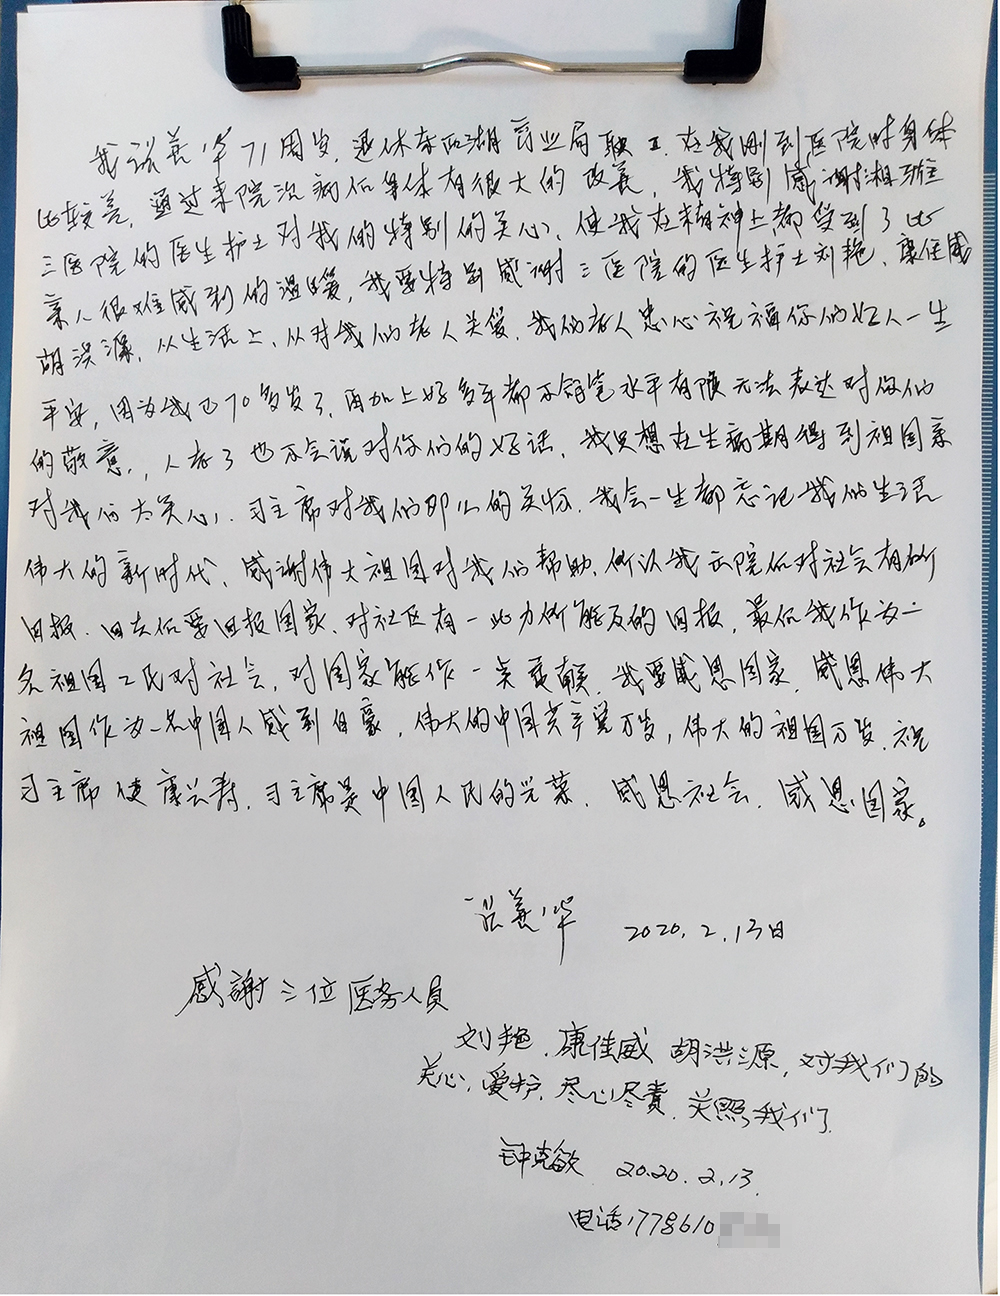 我谈善华71周岁，退休东西湖商业局职工，在我刚到医院时身体
比较差，通过来院治病后身体有很大的改善，我特别感谢湘雅
三医院的医生护士对我的特别的关心，使我在精神上都受到了比
亲人很难感到的温暖，我要特别感谢三医院的医生护士刘艳、康佳威
胡洪源，从生活上，从对我们老人关爱，我们老人忠心祝福你们好人一生
平安，因为我已70多岁了，再加上好多年都不写笔水平有限无法表达对你们
的敬意，人老了也不会说对你们的好话，我只想在生病期得到祖国亲
对我们太关心，习主席对我们那么的关怀，我会一生都忘记我们生活
伟大的新时代，感谢伟大祖国对我们帮助，所以我出院后对社会有所
回报，回去后要回报国家，对社区有一此力所能及的回报，最后我作为一
名祖国公民对社会，对国家能作一点贡献，我要感恩国家，感恩伟大
祖国作为一名中国人感到自豪，伟大的中国共产党万岁，伟大的祖国万岁，祝
习主席健康长寿，习主席是中国人民的光荣，感恩社会，感恩国家。
谈善华 2020.2.13日
感謝三位医务人员
刘艳、康佳威 胡洪源，对我们的
关心，爱护，尽心尽责，关照我们
钟克敏 2020.2.13.
电话1778610